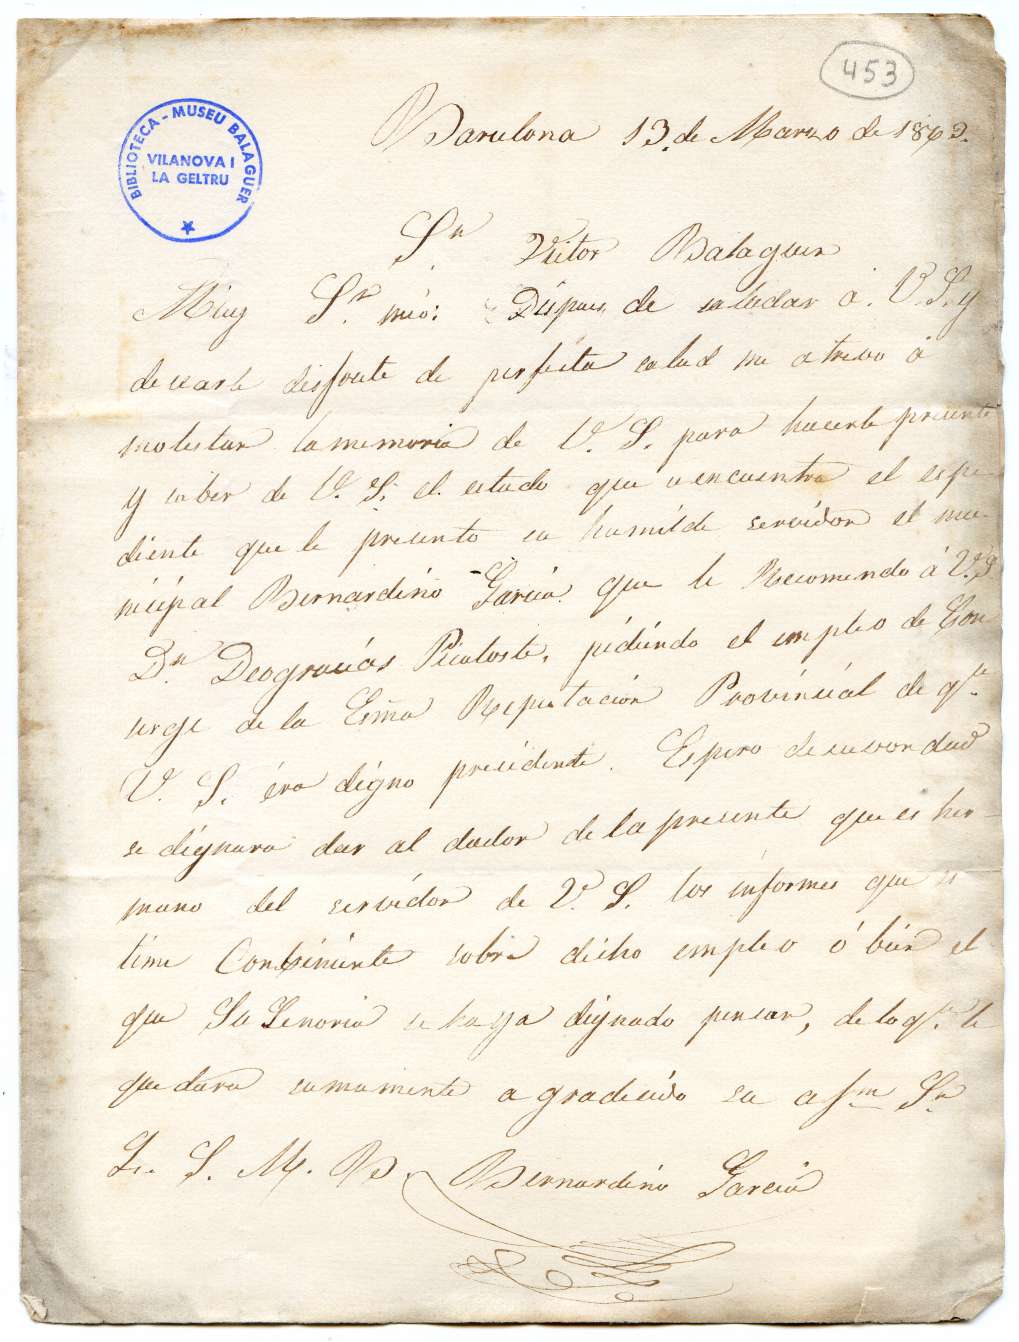 453
BIBLIOTECA - MUSEU BALAGUER
VILANOVA I
LA GELTRU
Barcelona 13 de Marzo de 1863.
Sr Victor Balaguer
Muy Sr. mio: Dispues de saludar á V. S. y
desearle disfrute de perfecta salud me atrevo á
molestar la memoria de V. S. para hacerle presente
y saber de V. S. el estado que se encuentra el espe-
diente que le presento su humilde servidor el mu-
nicipal Bernardino Garcia que le Recomendo á V. S
Dn Deogracias Picatoste, pidiendo el empleo de Con
serge de la Esma Reputación Provincial de qe
V. S. éra digno precidente. Espero de su bondad
se dignara dar al dador de la presente que es her-
mano del servidor de V. S. los informes que es
time Conbiniente sobre dicho empleo ó bien el
que Su Senoria se haya dignado pensar, de lo qe le
quedara sumamente agradecido su afmo Sr
Q. S. M. B. Bernardino Garcia